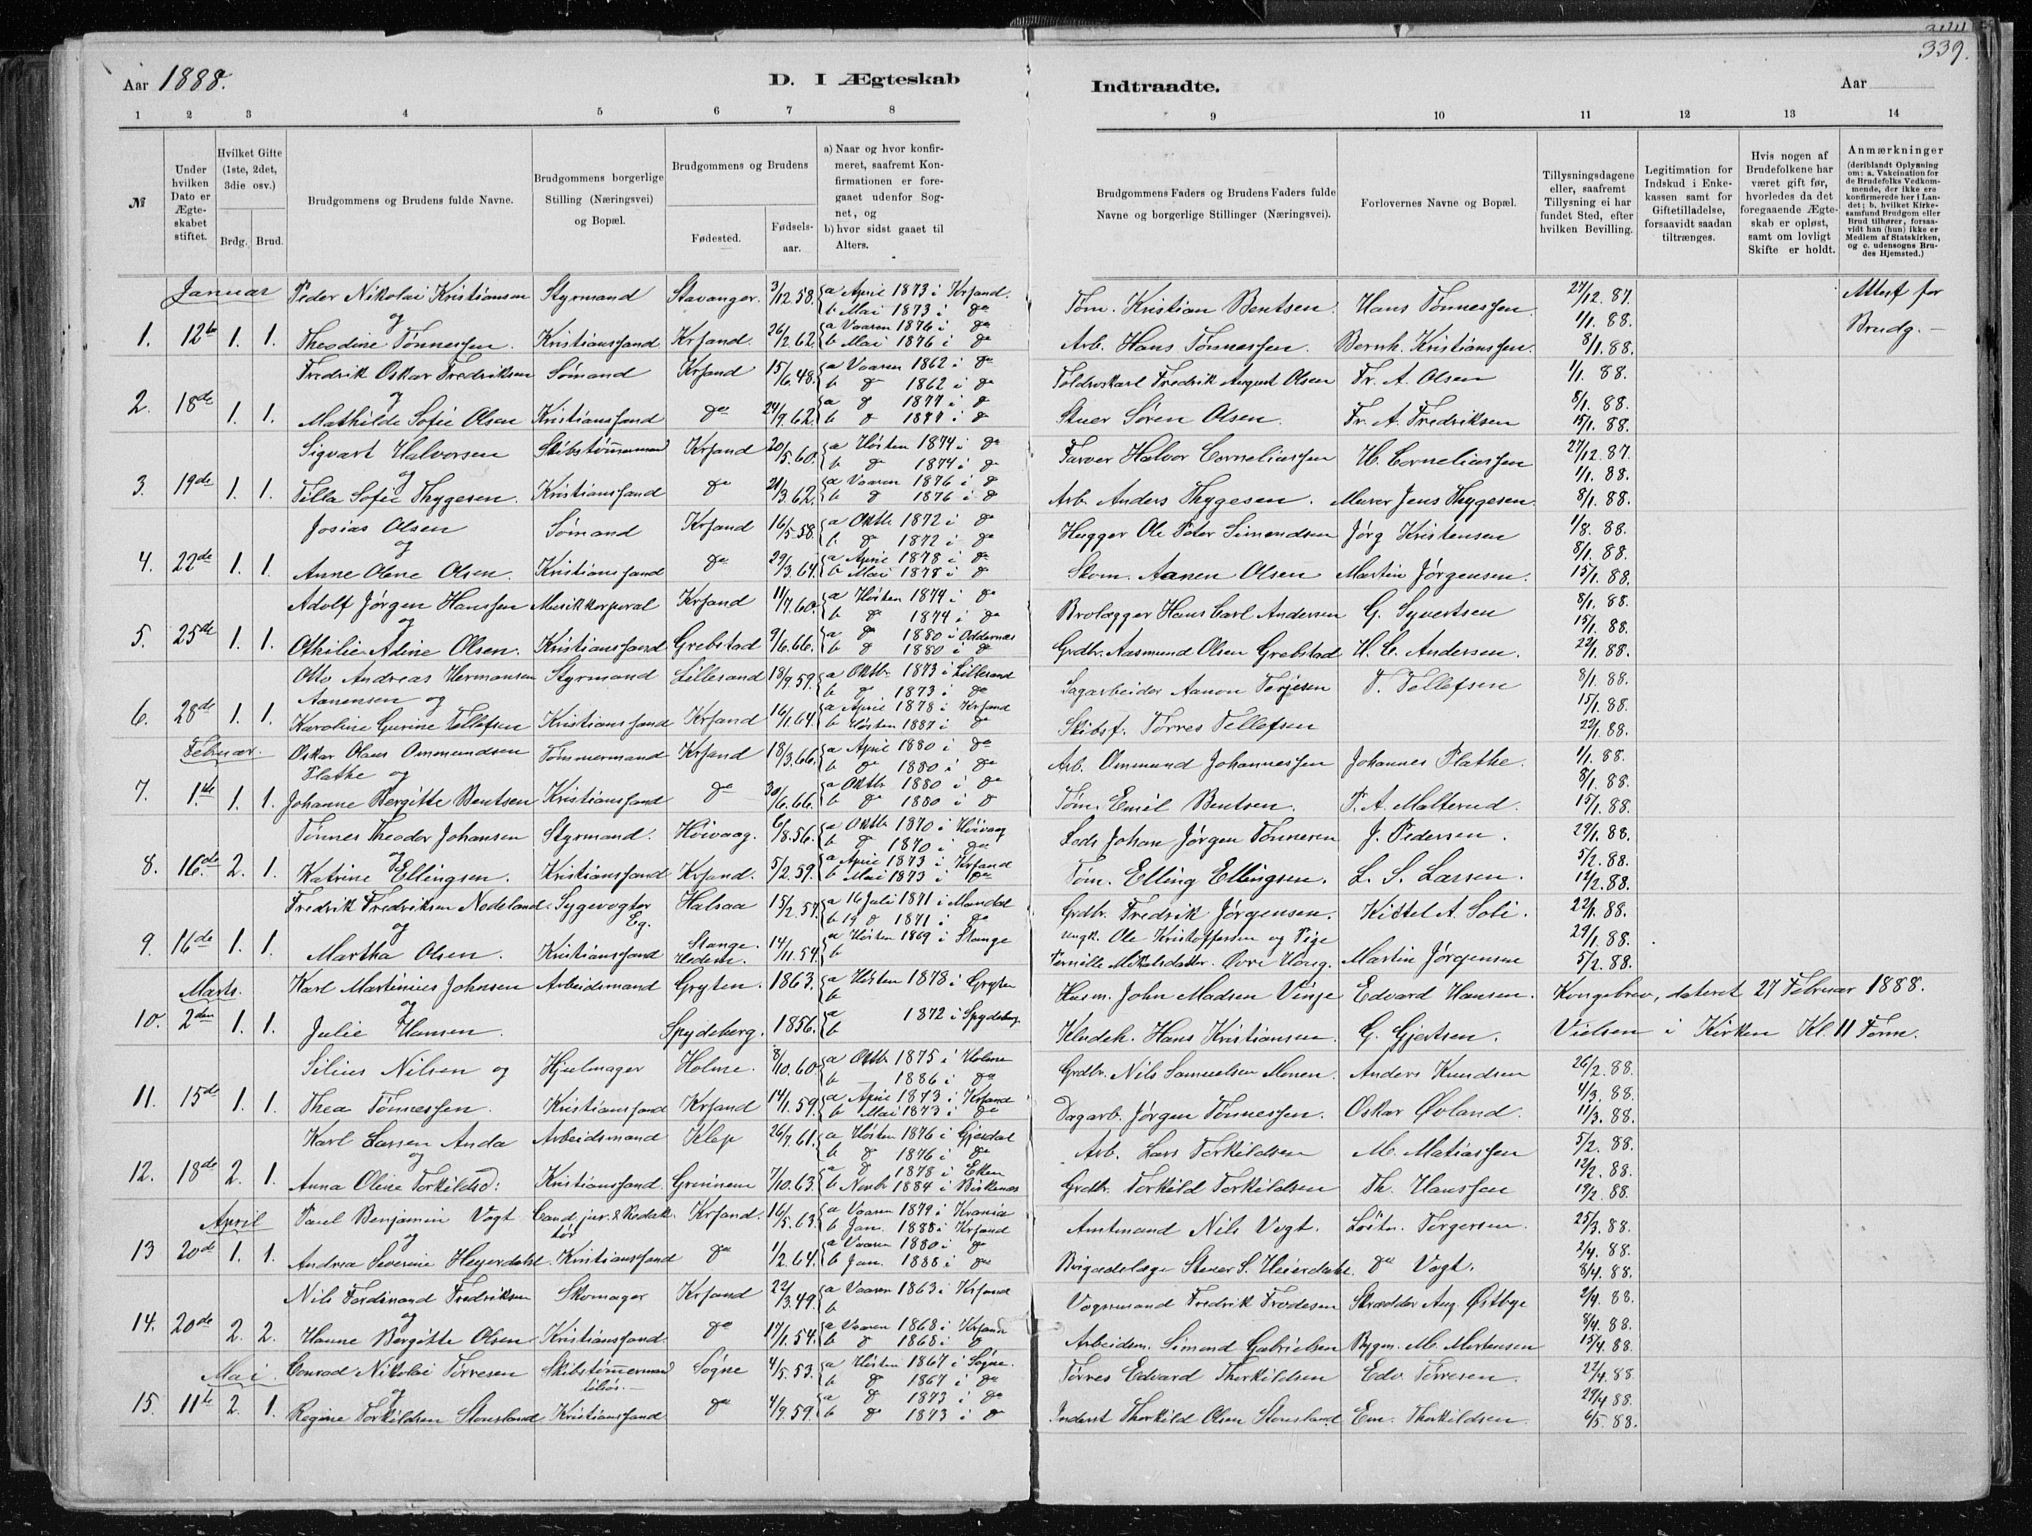 339.
Aar 1888. D. I Ægteskab Indtraadte. Aar
1 2 3 4 5 6 7 8 9 10 11 12 13 14
№
Under hvilken Dato er Ægteskabet stiftet.
Hvilket Gifte (1ste, 2det, 3die osv.)
Brdg. Brud.
Brudgommens og Brudens fulde Navne.
Brudgommens borgerlige Stilling (Næringsvei) og Bopæl.
Brudgommens og Brudens
Fødested. Fødselsaar.
a) Naar og hvor konfirmeret, saafremt Konfirmationen er foregaaet udenfor Sognet, og
b) hvor sidst gaaet til Alters.
Brudgommens Faders og Brudens Faders fulde Navne og borgerlige Stillinger (Næringsvei).
Forlovernes Navne og Bopæl.
Tillysningsdagene eller, saafremt Tillysning ei har fundet Sted, efter hvilken Bevilling.
Legitimation for Indskud i Enkekassen samt for Giftetilladelse, forsaavidt saadan tiltrænges.
Hvis nogen af Brudefolkene har været gift før, hvorledes da det foregaaende Ægteskab er opløst, samt om lovligt Skifte er holdt.
Anmærkninger (deriblandt Oplysning om: a. Vakcination for de Brudefolks Vedkommende, der ikke ere konfirmerede her i Landet; b, hvilket Kirkesamfund Brudgom eller Brud tilhører, forsaavidt han (hun) ikke er Medlem af Statskirken, og c. udensogns Brudes Hjemsted.)
Januar Peder Nikolai Kristiansen Styrmand Stavanger. 3/12 58. a April 1873 i Krsand. b Mai 1873 i do Tøm. Kristian Bentsen Hans Tønnessen 27/12. 87. 1/1. 88. Attest for Brudg. —
og
1. 12te 1. 1. Theodine Tønnessen. Kristianssand Krsand. 26/2 62 a Vaaren 1876 i do b Mai 1876 i do Arb. Hans Tønnessen. Bernh. Kristianssen. 8/1. 88.
Fredrik Oskar Fredriksen Sømand Krsand 15/6. 48. a Vaaren 1862 i do b do 1862 i do Toldroskarl Fredrik August Olsen Fr. A. Olsen 1/1. 88.
og
2. 18de 1. 1. Mathilde Sofie Olsen Kristianssand do 24/9. 62. a do 1877 i do b do 1877 i do Stuer Søren Olsen. Fr. A. Fredriksen 8/1. 88. 15/1. 88.
Sigvart Halvorsen Skibstømmermand Krsand 20/5. 60. a Høsten 1874 i do b do 1874 i do Farver Halvor Corneliussen H. Corneliussen 27/12. 87. 1/1. 88.
og
3. 19de 1. 1. Tilla Sofie Thygesen. Kristianssand do 21/3. 62. a Vaaren 1876 i do b do 1876 i do Arb. Anders Thygesen. Murer Jens Thygesen. 8/1. 88.
Josias Olsen Sømand Krsand 16/5. 58. a Oktbr 1872 i do b do 1872 i do Hugger Ole Peter Simondsen Jørg Kristensen 1/8. 88. 8/1. 88.
og
4. 22de 1. 1. Anne Olene Olsen. Kristianssand do 29/3. 64. a April 1878 i do b Mai 1878 i do Skom. Aanen Olsen Martin Jørgensen. 15/1. 88.
Adolf Jørgen Hanssen Musikkorporal Krsand 11/7. 60. a Høsten 1874 i do b do 1874 i do Brolægger Hans Carl Andersen G. Syvertsen 8/1. 88. 15/1. 88.
og
5. 25de 1. 1. Othilie Adine Olsen. Kristianssand Grebstad 9/6. 66. a do 1880 i Oddernæs b do 1880 i do Grdbr. Aasmund Olsen Grebstad H. C. Andersen. 22/1. 88.
Otto Andreas Hermansen Styrmand Lillesand 18/9. 59. a Oktbr 1873 i Lillesand b do 1873 i do Sagarbeider Aanon Terjesen T. Tellefsen 8/1. 88.
Aanensen og
6. 28de 1. 1. Karoline Gurine Tellefsen Kristianssand Krsand 16/1. 64. a April 1878 i Krsand b Høsten 1887 i do Skibsf. Tørres Tellefsen 15/1. 88. 22/1. 88.
Februar. Oskar Olaus Ommundsen Tømmermand Krsand 18/3. 66. a April 1880 i do b do 1880 i do Arb. Ommund Johannessen Johannes Plathe. 1/1. 88. 8/1. 88.
Plathe og
7. 1ste 1. 1. Johanne Bergitte Bentsen Kristianssand do 30/6. 66. a Oktbr 1880 i do b do 1880 i do Tøm. Emil Bentsen. P. A. Malterud. 15/1. 88.
Tønnes Theodor Johansen Styrmand. Høivaag. 6/8. 56. a Oktbr 1870 i Høivaag b do 1870 i do Lods Johan Jørgen Tønnesen J. Pedersen. 29/1. 88.
og
8. 16de 2. 1. Katrine Ellingsen. Kristianssand Krsand. 5/2. 59. a April 1873 i Krsand b Mai 1873 i do Tøm. Elling Ellingsen. L. S. Larsen. 5/2. 88. 12/2. 88.
Fredrik Fredriksen Nodeland Sygevogter Eg. Halsaa 15/2. 57. a 16 Juli 1871 i Mandal b 19 do 1871 i do Grdbr. Fredrik Jørgensen. Kittel A. Soli. 22/1. 88.
og
9. 16de 1. 1. Martha Olsen. Kristianssand Stange. Hedem. 14/11. 54. a Høsten 1869 i Stange b Ungk. Ole Kristoffersen og Pige Pernille Mikelsdatter. Øvre Houg. Martin Jørgensen 29/1. 88. 5/2. 88.
Marts. Karl Martinius Johnsen Arbeidsmand Gryten. 1863. a Høsten 1878 i Gryten b Husm. John Madsen Vinje Edvard Hansen. Kongebrev, dateret 27 Februar 1888.
og
10. 2den 1. 1. Julie Hansen. Spydeberg. 1856. a 1872 i Spydeberg b Kludek. Hans Kristiansen. G. Gjertsen. Vielsen i Kirken Kl. 11 Form.
Silius Nilsen og Hjulmager Holme. 8/10. 60. a Oktbr 1875 i Holme b 1886 i do Grdbr. Nils Samuelsen Monen. Anders Knudsen 26/2. 88. 4/3. 88.
11. 15de 1. 1. Thea Tønnessen. Kristianssand Krsand 14/1. 59. a April 1873 i Krsand b Mai 1873 i do Dagarb. Jørgen Tønnessen. Oskar Øvland. 11/3. 88.
Karl Larsen Anda Arbeidsmand Klep 26/7. 61. a Høsten 1876 i Gjesdal b do 1876 i do Arb. Lars Torkildsen M. Matiassen 5/2. 88. 12/2. 88.
og
12. 18de 2. 1. Anna Oline Torkildsd: Kristianssand. Grinnem 7/10. 63. a do 1878 i Eken b Novbr 1884 i Birkenæs Grdbr. Torkild Torkildsen Th. Hanssen 19/2. 88.
April Paul Benjamin Vogt Cand. jur. & Redaktør Krsand. 16/5. 63. a Vaaren 1879 i Krania b Jan. 1888 i Krsand Amtmand Nils Vogt. Løitn. Torgersen. 25/3. 88.
og
13 20de 1. 1. Andrea Severine Heyerdahl Kristianssand do 1/2. 64. a Vaaren 1880 i do b Jan. 1888 i do Brigadelæge Stener S. Heierdahl. do Vogt. 2/4. 88. 8/4. 88.
Nils Ferdinand Fredriksen Skomager Krsand 22/3. 49. a Vaaren 1863 i Krsand b Vognmand Fredrik Frodesen Skrædder Aug. Østbye 2/4. 88.
og
14. 20de 2. 2. Hanne Bergitte Olsen Kristianssand. do 17/1. 54. a Vaaren 1868 i Krsand b do 1868 i do Arbeidsm. Simond Gabrielsen Bygm. M. Mortensen 8/4. 88. 15/4. 88.
Mai. Conrad Nikolai Tørresen Skibstømmermand Søgne 4/5. 53. a Høsten 1867 i Søgne. b do 1867 i do Tørres Edvard Thorkildsen Edv. Tørresen. 22/4. 88.
og
15. 11te 2. 1. Regine Torkildsen Stousland Kristianssand do 4/9. 59. a do 1873 i do b do 1873 i do Inderst Thorkild Olsen Stousland Em. Thorkildsen. 29/4 88. 6/5. 88.